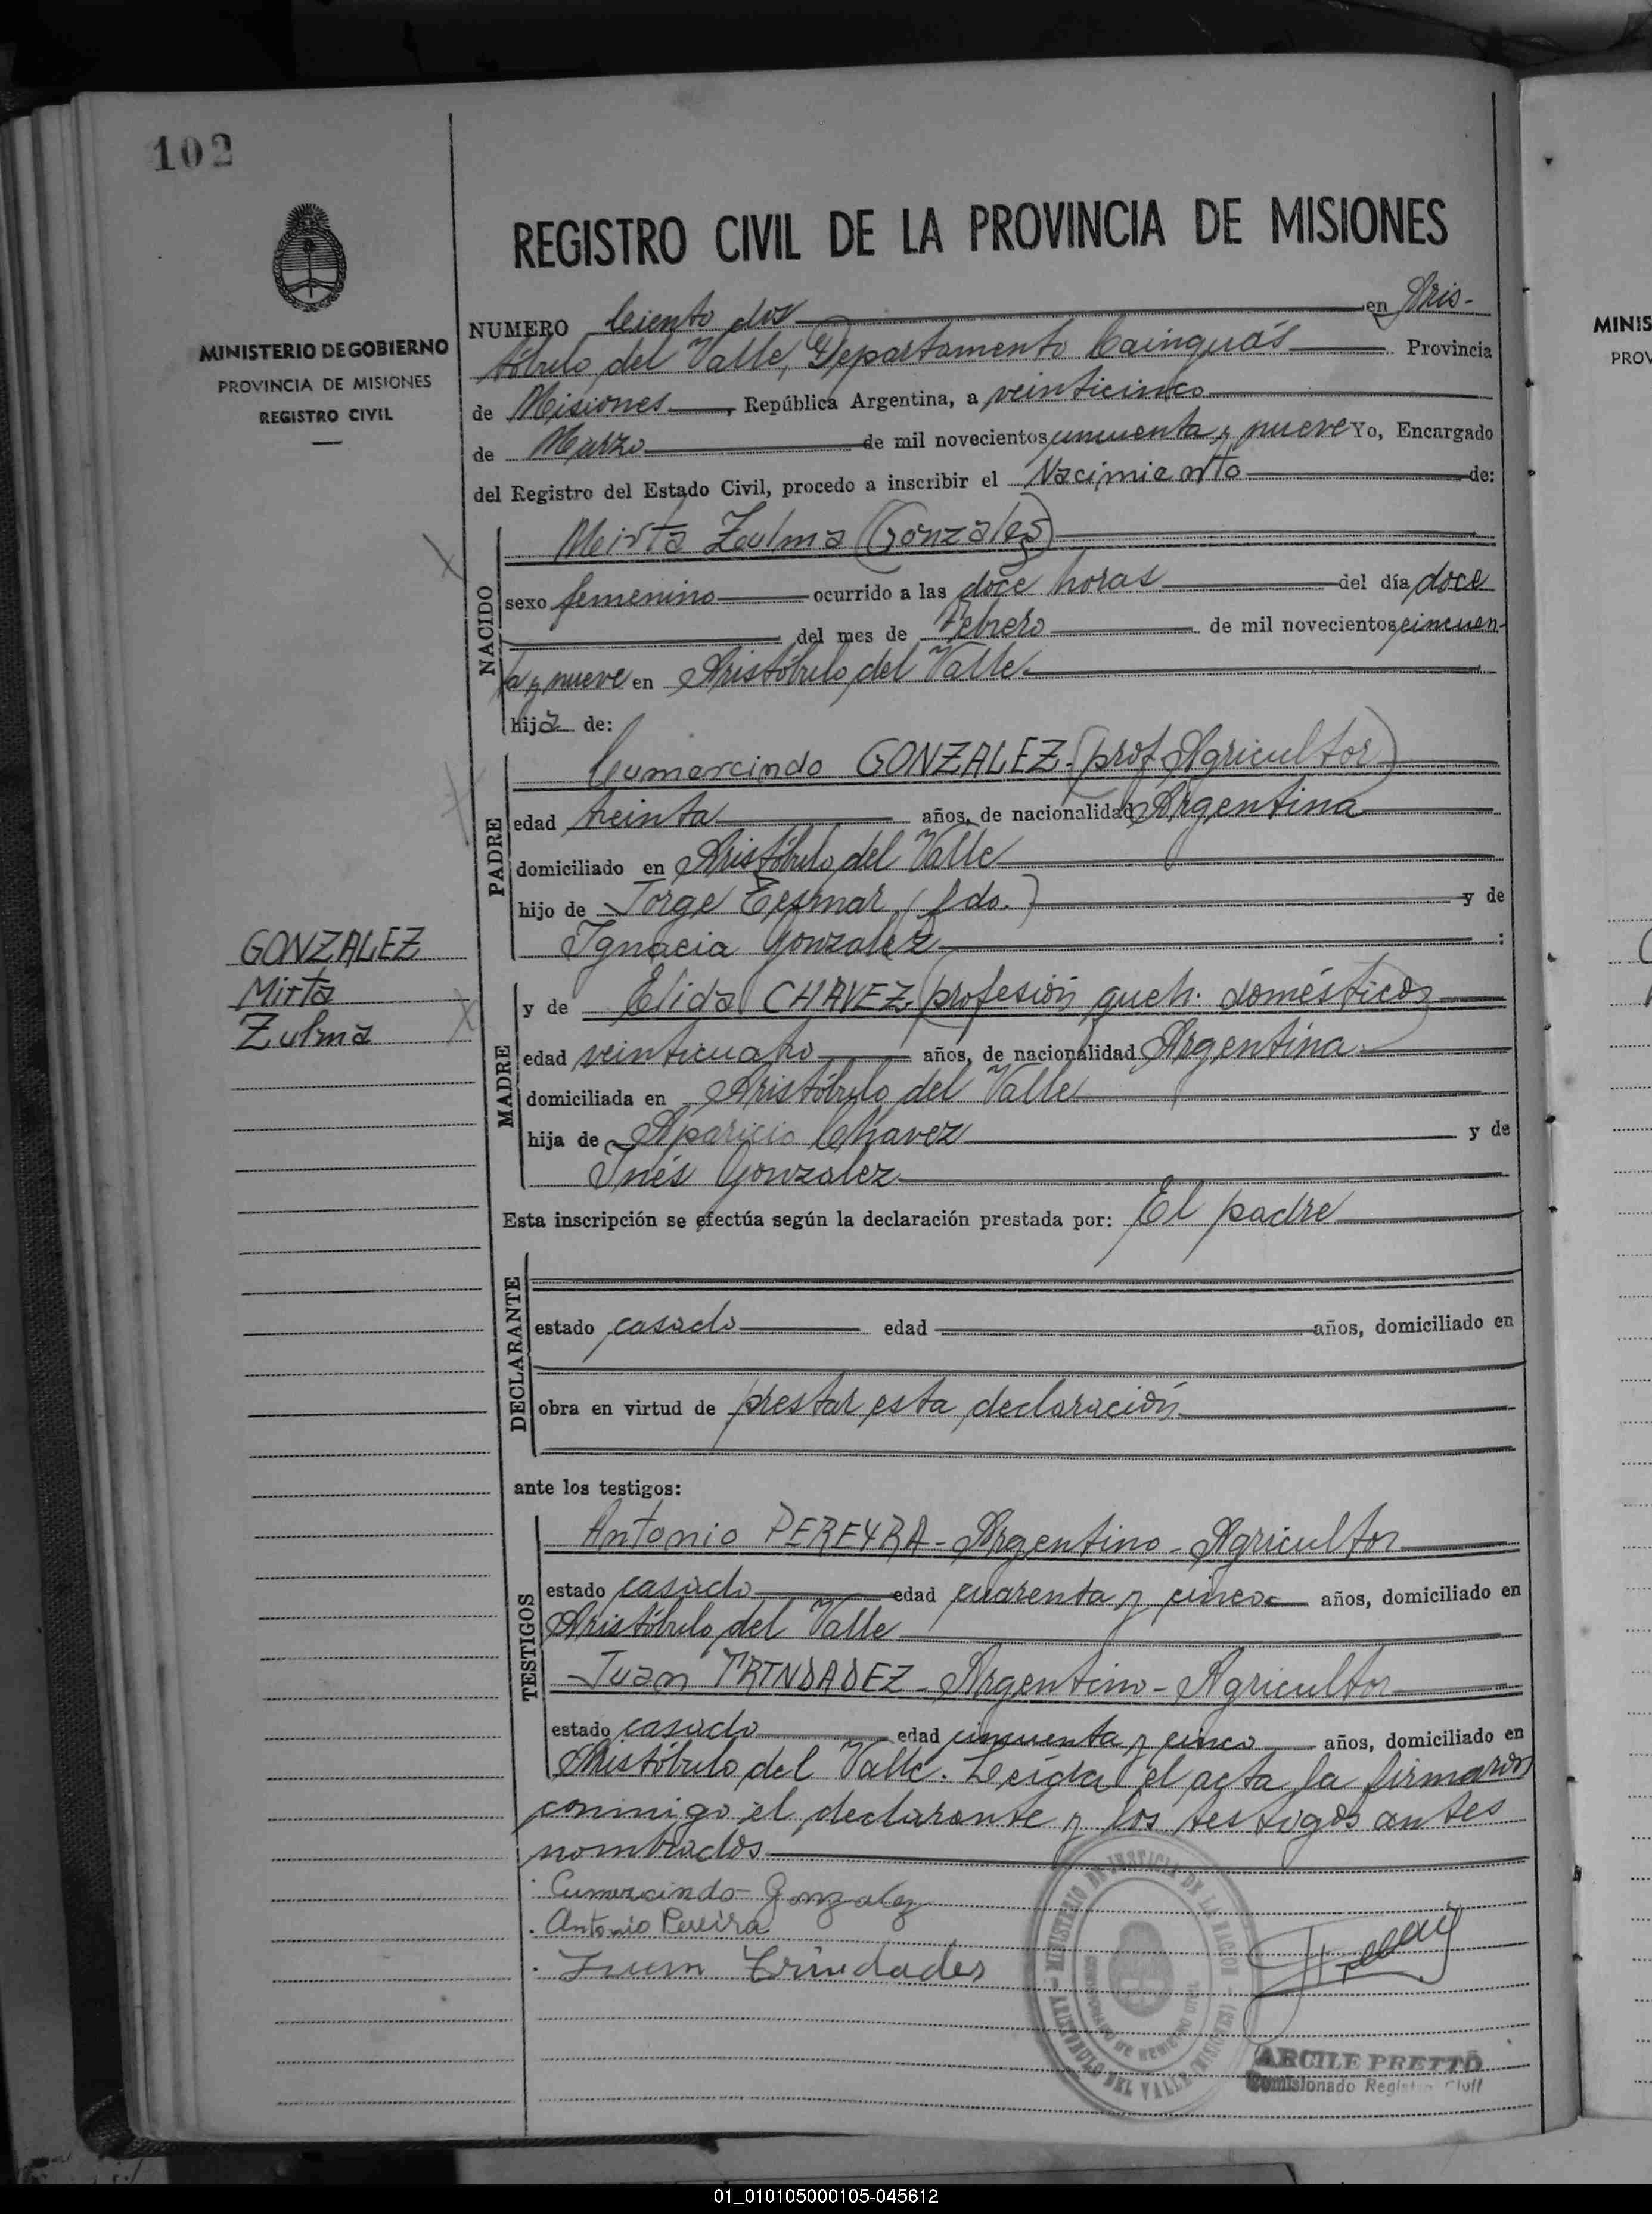 102
MINISTERIO DE GOBIERNO
PROVINCIA DE MISIONES
REGISTRO CIVIL
REGISTRO CIVIL DE LA PROVINCIA DE MISIONES
NUMERO Ciento dos en Aris-
tóbulo del Valle, Departamento Cainguás Provincia
de Misiones, República Argentina, a veinticinco
de Marzo de mil novecientos cincuenta y nueve Yo, Encargado
del Registro del Estado Civil, procedo a inscribir el Nacimiento de:
NACIDO
Mirta Zulma (Gonzales)
sexo femenino ocurrido a las doce horas del día doce
del mes de Febrero de mil novecientos cincuen-
ta y nueve en Aristóbulo del Valle
hija de:
PADRE
Cumercindo GONZALEZ - (prof. Agricultor)
edad treinta años, de nacionalidad Argentina
domiciliado en Aristóbulo del Valle
hijo de Jorge (fdo.) y de
Ignacia Gonzalez :
GONZALEZ
Mirta
Zulma
MADRE
y de Elida CHAVEZ. (profesión queh. domésticos)
edad veinticuatro años, de nacionalidad Argentina.
domiciliada en Aristóbulo del Valle
hija de Aparicio Chavez y de
Inés Gonzalez
Esta inscripción se efectúa según la declaración prestada por: El padre
DECLARANTE
estado casado edad años, domiciliado en
obra en virtud de prestar esta declaración
ante los testigos:
TESTIGOS
Antonio PEREYRA - Argentino - Agricultor
estado casado edad cuarenta y cinco años, domiciliado en
Aristóbulo del Valle
Juan TRINDADEZ - Argentino - Agricultor
estado casado edad cincuenta y cinco años, domiciliado en
Aristóbulo del Valle. Leída el acta la firmaron
conmigo el declarante y los testigos antes
nombrados
Cumercindo Gonzalez
Antonio Pereira
Juan Trindades
MINISTERIO DE JUSTICIA DE LA NACION
ARISTOBULO DEL VALLE (MISIONES)
ARCILE PRETTO
Comisionado Registro Civil
MINIS
PROV
01_010105000105-045612